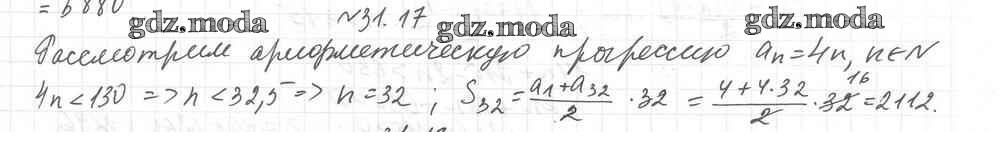 = 6880
№31.17
gdz.moda gdz.moda gdz.moda
Рассмотрим арифметическую прогрессию aₙ=4n, n∈N
4n<130 => n<32,5 => n=32; S₃₂ = (a₁+a₃₂)/2 · 32 = (4+4·32)/2 · 32 16 = 2112.